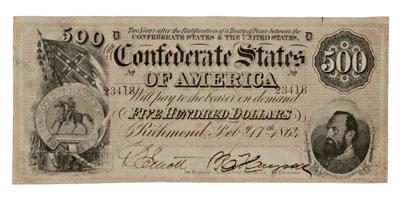 Two Years after the Ratification of a Treaty of Peace between the
CONFEDERATE STATES & THE UNITED STATES,
500 D D
Confederate States
OF AMERICA
500
23418 23418
Will pay to the bearer on demand
FIVE HUNDRED DOLLARS
Richmond, Feby 17th, 1864